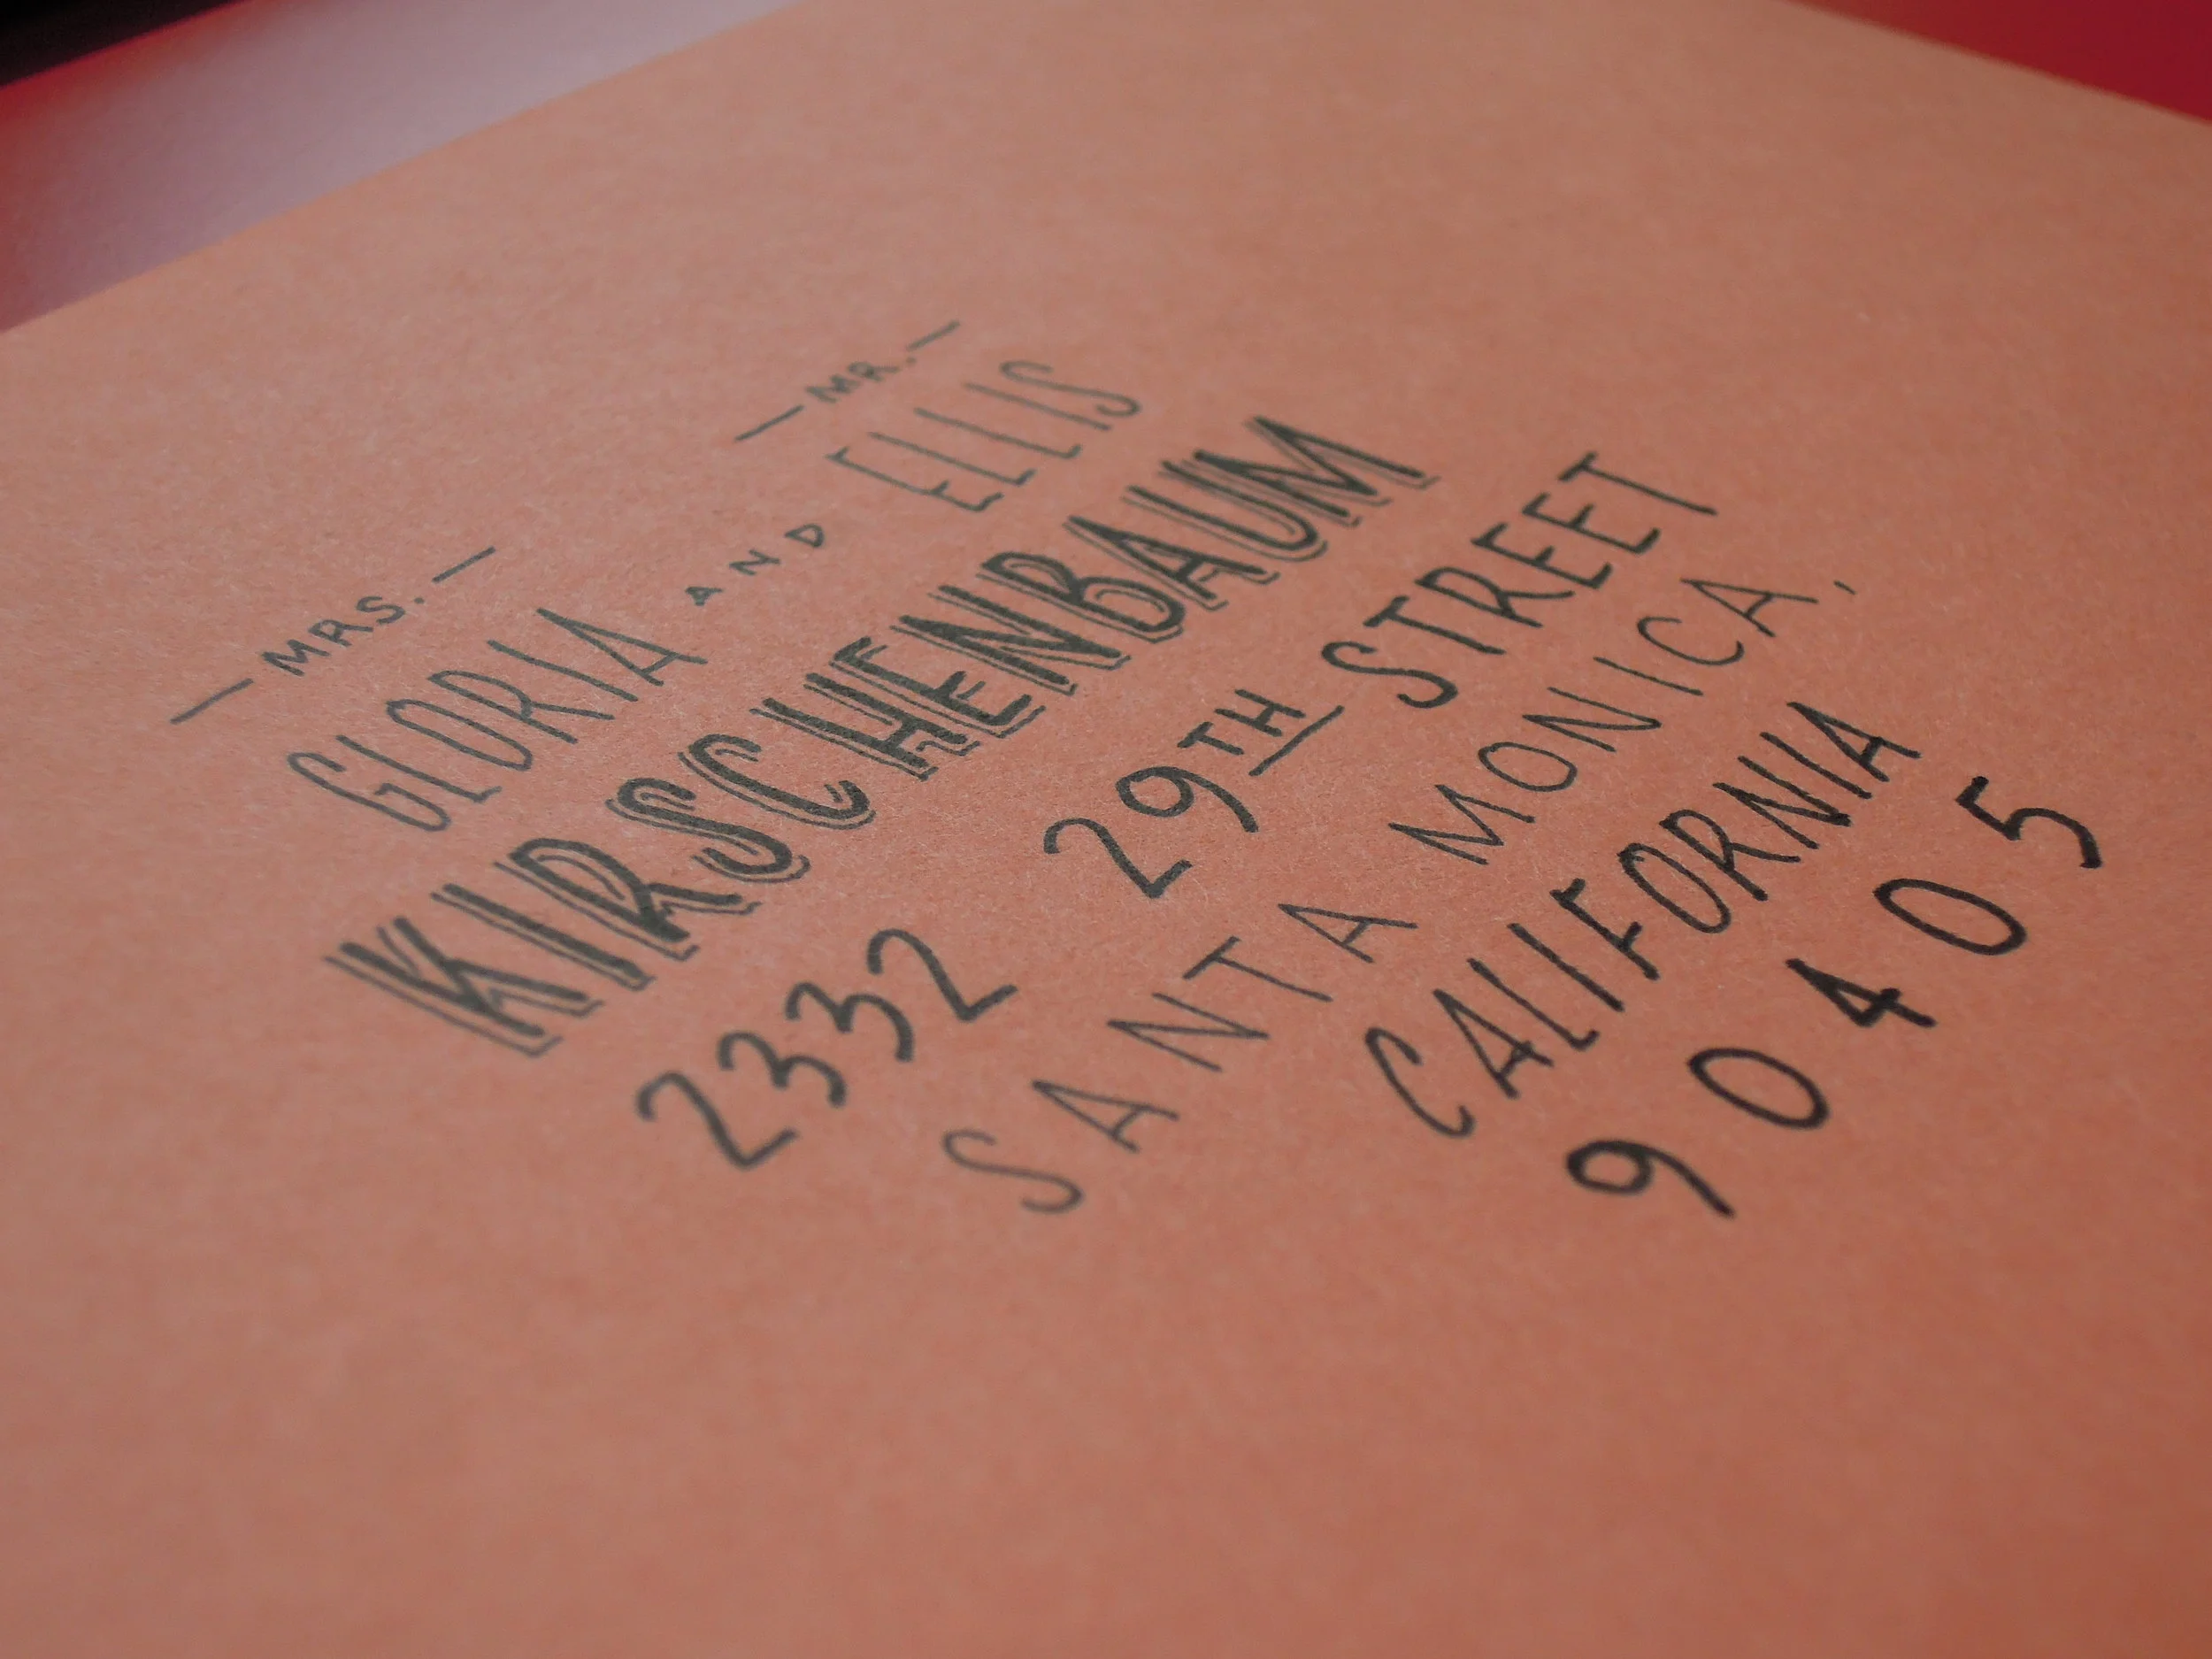 — MRS. — — MR. —
GLORIA AND ELLIS
KIRSCHENBAUM
2332 29TH STREET
SANTA MONICA,
CALIFORNIA
90405